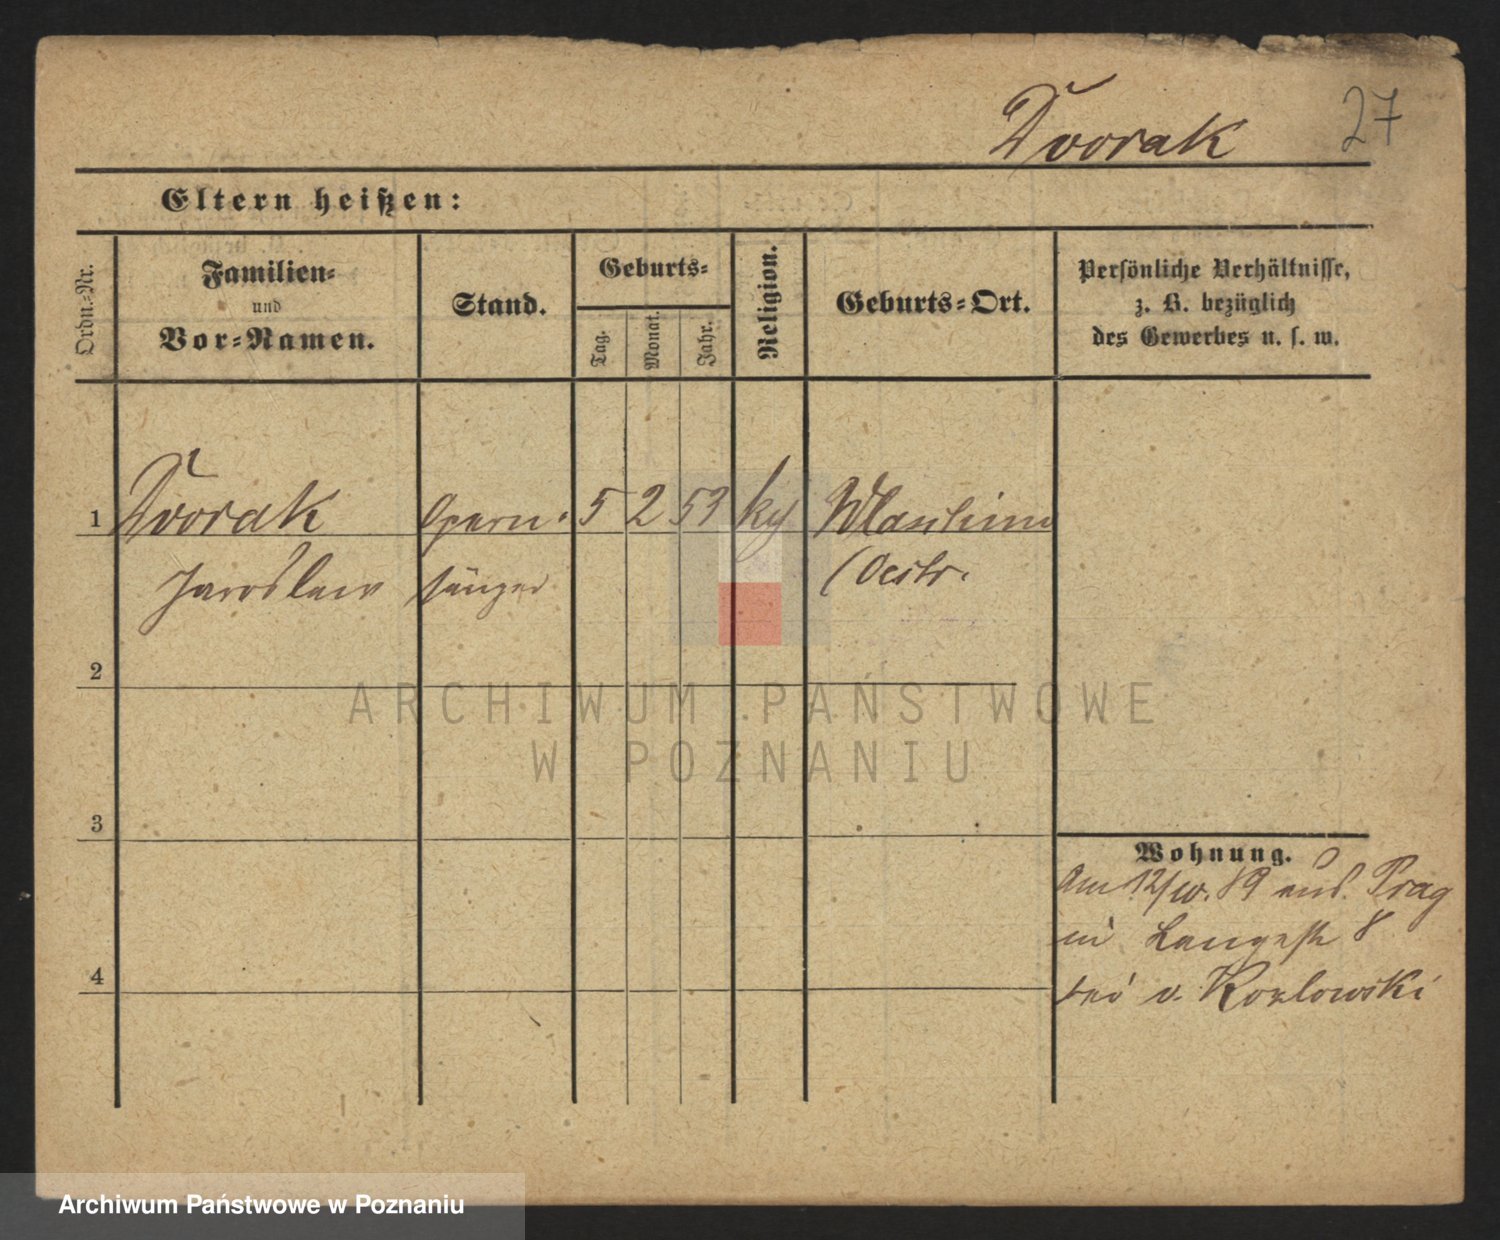 Dvorak 27
Eltern heißen:
Ordn.-Nr.
Familien-
und
Vor-Namen.
Stand.
Geburts-
Tag.
Monat.
Jahr.
Religion.
Geburts-Ort.
Persönliche Verhältnisse,
z. B. bezüglich
des Gewerbes u. s. w.
1 Dvorak Opern- 5 2 59 Wlaschim
Jaroslaw sänger (Oestr.
2
3
4
Wohnung.
Am 12/10. 89 aus Prag
in Langestr 8
bei v. Kozlowski
ARCHIWUM PAŃSTWOWE
W POZNANIU
Archiwum Państwowe w Poznaniu